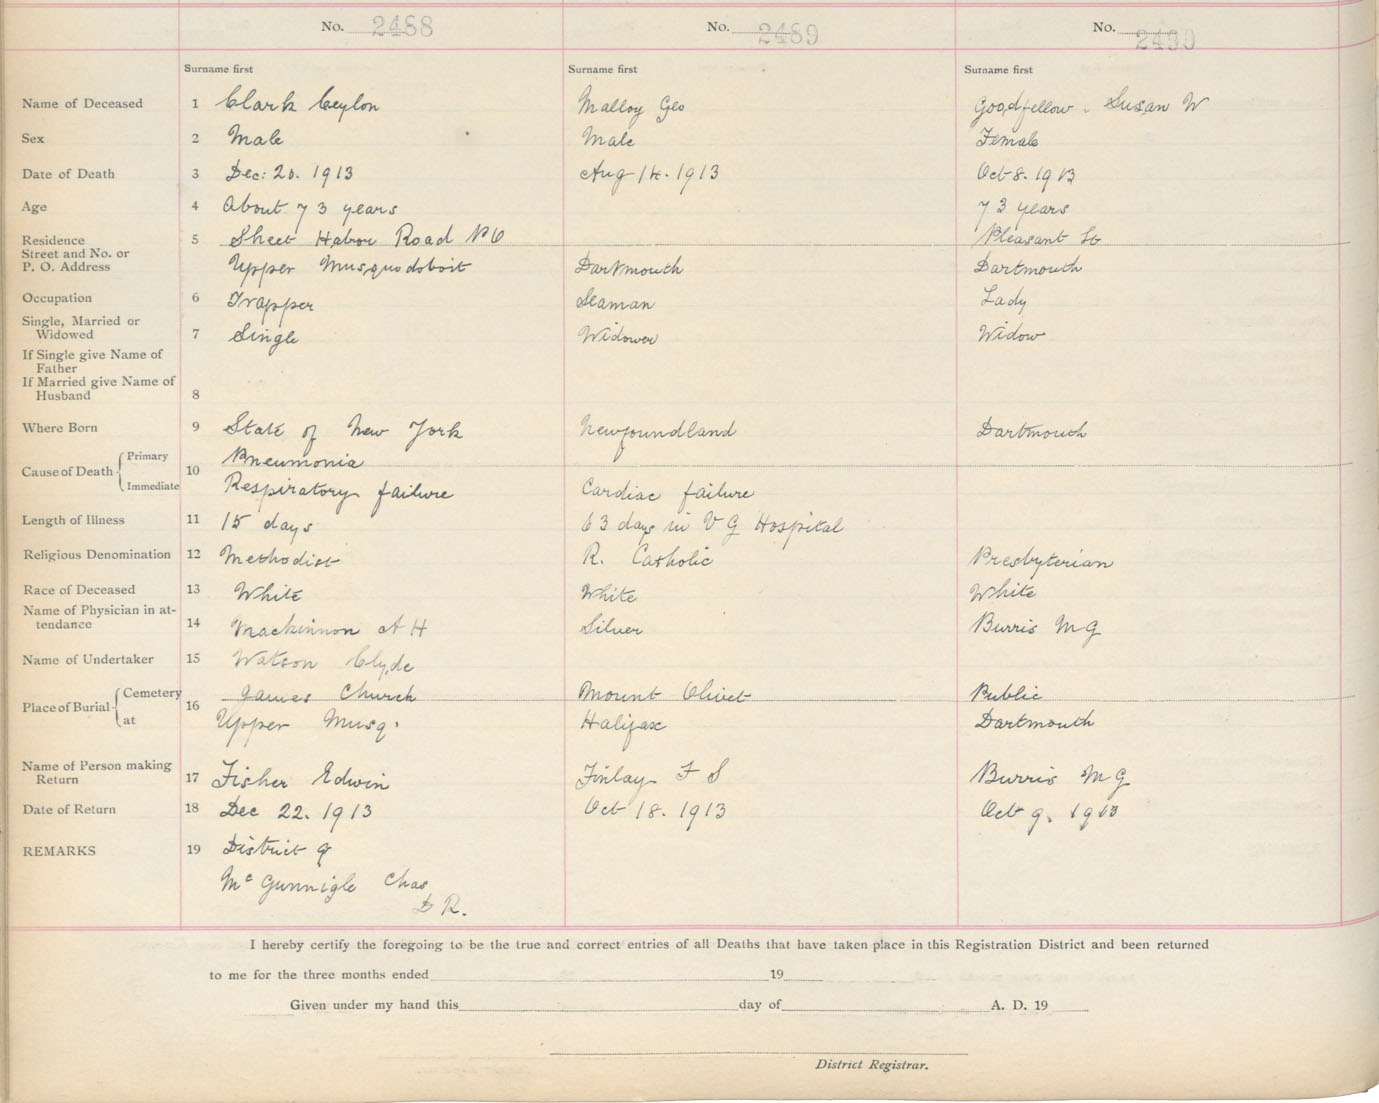 No. 2488 No. 2489 No. 2490
Surname first Surname first Surname first
Name of Deceased 1 Clark Ceylon Malloy Geo Goodfellow - Susan W
Sex 2 Male Male Female
Date of Death 3 Dec: 20. 1913 Aug 14. 1913 Oct 8. 1913
Age 4 About 73 years 73 years
Residence 5 Sheet Habor Road P O Pleasant St
Street and No. or
P. O. Address Upper Musquodoboit Dartmouth Dartmouth
Occupation 6 Trapper Seaman Lady
Single, Married or
Widowed 7 Single Widower Widow
If Single give Name of
Father
If Married give Name of
Husband 8
Where Born 9 State of New York Newfoundland Dartmouth
Cause of Death Primary 10 Pneumonia
Immediate Respiratory failure Cardiac failure
Length of Illness 11 15 days 63 days in V G Hospital
Religious Denomination 12 Methodist R. Catholic Presbyterian
Race of Deceased 13 White White White
Name of Physician in at-
tendance 14 Mackinnon A H Silver Burris M G
Name of Undertaker 15 Watson Clyde
Place of Burial Cemetery 16 James Church Mount Olivet Public
at Upper Musq. Halifax Dartmouth
Name of Person making
Return 17 Fisher Edwin Finlay F S Burris M G
Date of Return 18 Dec 22. 1913 Oct 18. 1913 Oct 9. 1913
REMARKS 19 District 9
Mc Gunnigle Chas
D R.
I hereby certify the foregoing to be the true and correct entries of all Deaths that have taken place in this Registration District and been returned
to me for the three months ended 19
Given under my hand this day of A. D. 19
District Registrar.